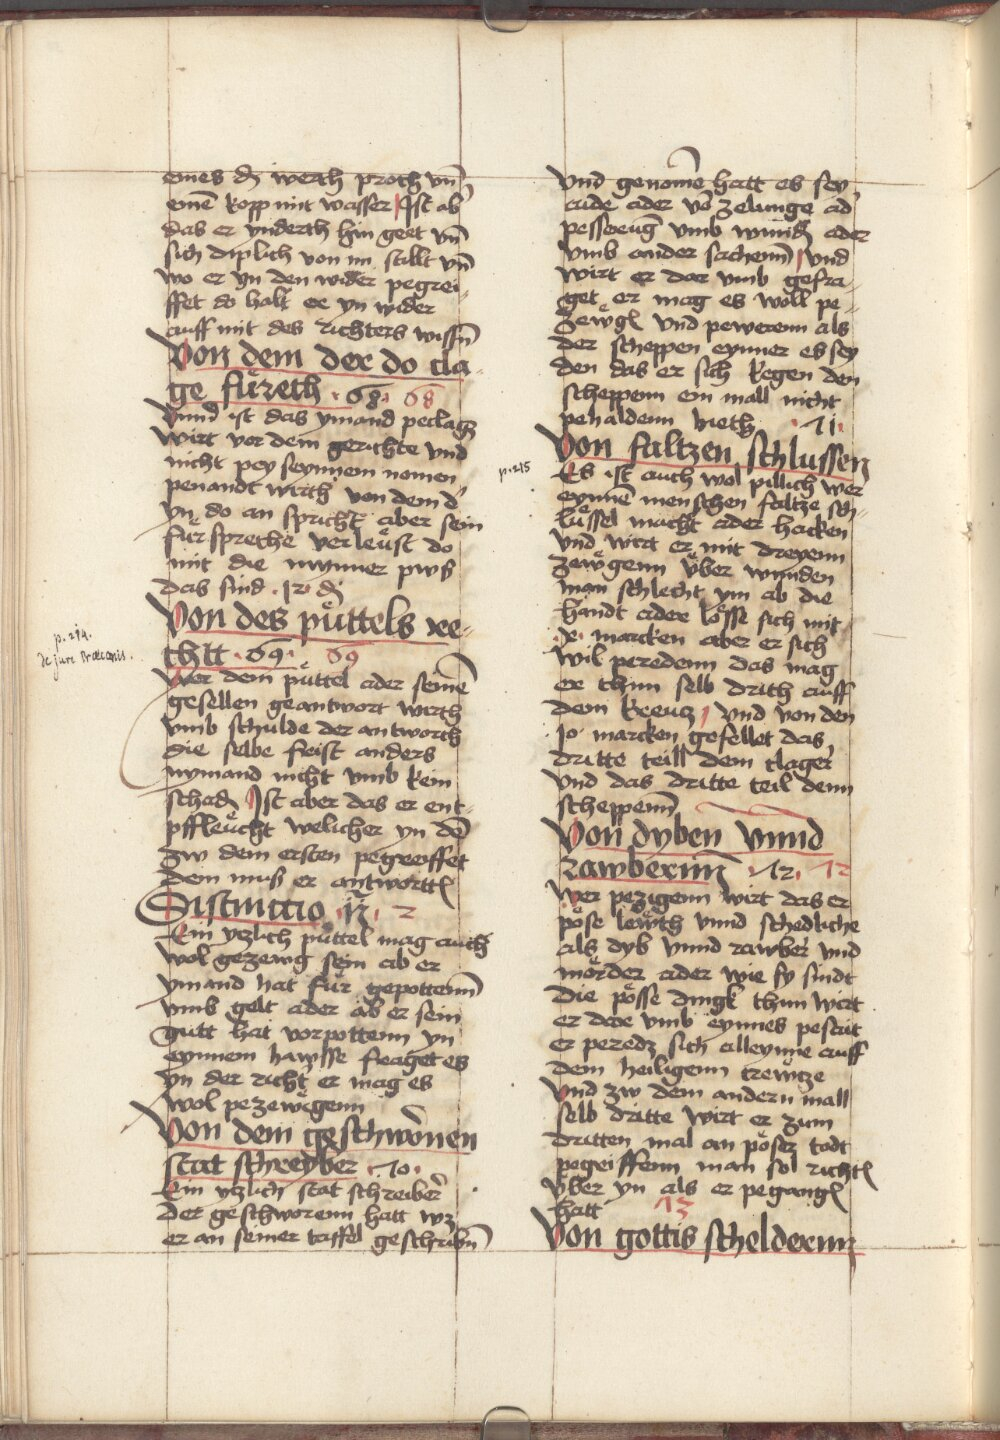 eines d₎ werth proth vn̄
einē kopp mit wasser Ist ab'
das er ynderth hin geet vn̄
sich diplich von im stillt vn̄
wo er yn den wider pegrei-
ffet do halt er yn wider
auff mit des richters wissn̄
Von dem der do cla-
ge fu̇reth .68. 68
Vnnd ist das ymand peclagt
wirt vor dem gerichte vnd
nicht pey seynnem nomen
penandt wirth von dem d'
yn do an spricht aber sein
fu̇rsprethe verleu̇st do
mit die mynner pws
das sind .12. d₎
Von des pu̇ttels re-
thtt .69. 69
p. 214.
de jure Praeconis.
Wer dem pu̇ttel ader seinē
gesellen geantwort wirth
vmb schulde der antworth
die selbe frist anders
nymand nicht vmb kein
schad₎ Ist aber das er ent-
pffleu̇cht welicher yn dē
zw dem ersten pegreiffet
dem mus er antwortt₎
Distinctio .ij. 2
Ein yzlich pu̇ttel mag auch
wol gezewg sein ab er
ymand hat fu̇r gepottenn̄
vmb gelt ader ab er sein
gutt hat vorpottenn yn
eynnem hawsse fraget es
yn der richt er mag es
wol pezewgenn
Von dem geschwornen
stat schreyber .70.
Ein yzlich stat schreiber
der geschworenn hatt wz
er an seiner taffel geschribn̄
vnd genomē hatt es sey
aide ader vō zelunge ad'
pesserūg vmb wund₎ ader
vmb ander sachenn̄ vnd
wirt er dar vmb gefra-
get er mag es woll pe-
zewg₎ vnd pewerenn als
der scheppen eynner es sey
den das er sich kegen den
scheppenn ein mall nicht
pehaldenn hieth .71.
Von faltzen schlussen
p. 215
Es ist auch wol pillich wer
eynnē menschen faltze sch-
lu̇ssel macht ader hacken
vnd wirt er mit dreyenn
zewgenn u̇ber wunden
man schlecht ym ab die
handt adere lo̊sse sich mit
.x. marcken aber er sich
wil peredenn das mag
er thun selb drith auff
dem kreucz vnd von den
10 marcken gefellet das
dritte teill dem clager
vnd das dritte teil denn
scheppenn̄
Von dyben vnnd
rawberenn̄ .72. 72
Wer pezigenn wirt das er
po̊se lewth vnnd schedliche
als dyb vnnd rawber vnd
mo̊rder ader wie sy sindt
die po̊sse dingk thun wirt
er dar vmb eynnes pescut
er peredz sich alleynne auff
dem heiligenn crewtze
vnd zw dem andern mall
selb dritte wirt er zum
dritten mal an po̊ser todt
pegreiffenn man sol richt₎
u̇ber yn als er pegang₎
hatt 73
Von gottis schelderenn